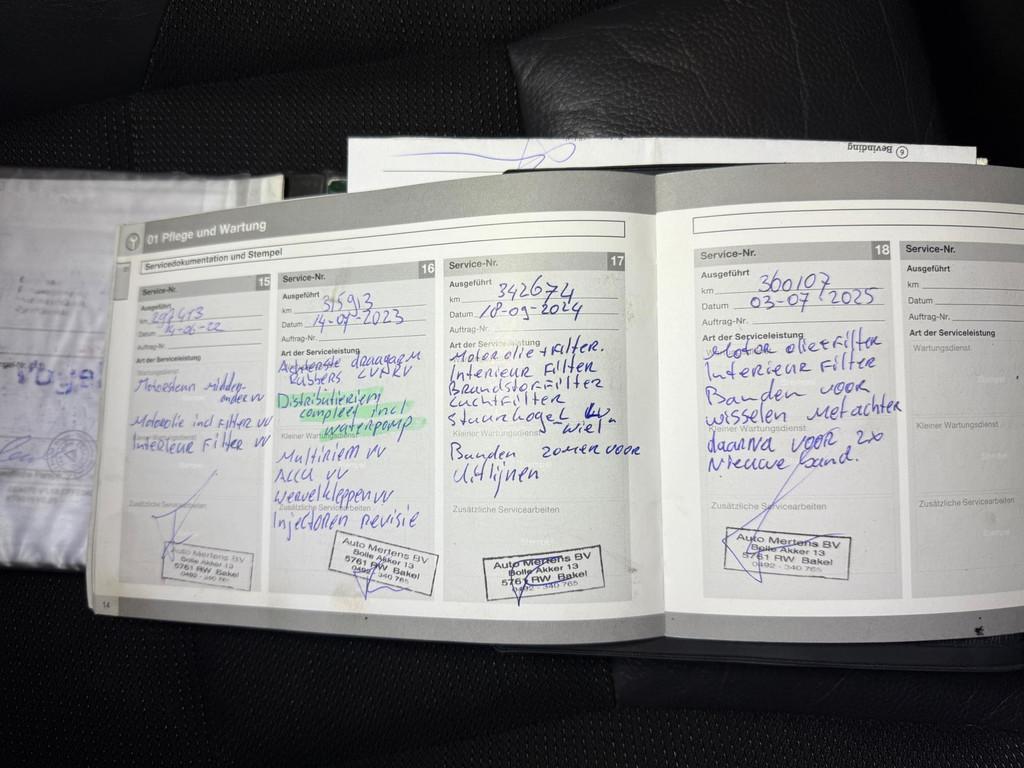 6 Bevinding
01 Pflege und Wartung
Servicedokumentation und Stempel
Service-Nr. 15
Ausgeführt
km
Datum 14-06-22
Auftrag-Nr.
Art der Serviceleistung
Wartungsdienst
Motorsteun midden-
onder vv
Motorolie incl Filter vv
Interieur Filter vv
Zusätzliche Servicearbeiten
Auto Mertens BV
Bolle Akker 13
5761 RW Bakel
0492 - 340 765
14
Service-Nr. 16
Ausgeführt
km 315913
Datum 14-07-2023
Auftrag-Nr.
Art der Serviceleistung
Achterste draagarm
Rubbers LV+RV
Distributieriem
compleet incl
waterpomp
Kleiner Wartungsdienst
Multiriem vv
Accu vv
Wervelkleppen vv
Injectoren revisie
Auto Mertens BV
Bolle Akker 13
5761 RW Bakel
0492 - 340 765
Service-Nr. 17
Ausgeführt
km 342674
Datum 18-09-2024
Auftrag-Nr.
Art der Serviceleistung
Motorolie + Filter.
Interieur Filter
Brandstoffilter
Luchtfilter
Stuurkogel
wiel-
Kleiner Wartungsdienst
Banden zomer voor
Uitlijnen
Zusätzliche Servicearbeiten
Auto Mertens BV
Bolle Akker 13
5761 RW Bakel
0492 - 340 765
Service-Nr. 18
Ausgeführt
km 360107
Datum 03-07-2025
Auftrag-Nr.
Art der Serviceleistung
Motor olie+Filter
Interieur Filter
Banden voor
wisselen met achter
Kleiner Wartungsdienst
daarna voor 2x
Nieuwe band.
Zusätzliche Servicearbeiten
Auto Mertens BV
Bolle Akker 13
5761 RW Bakel
0492 - 340 765
Service-Nr.
Ausgeführt
km
Datum
Auftrag-Nr.
Art der Serviceleistung
Wartungsdienst
Kleiner Wartungsdienst
Zusätzliche Servicearbeiten